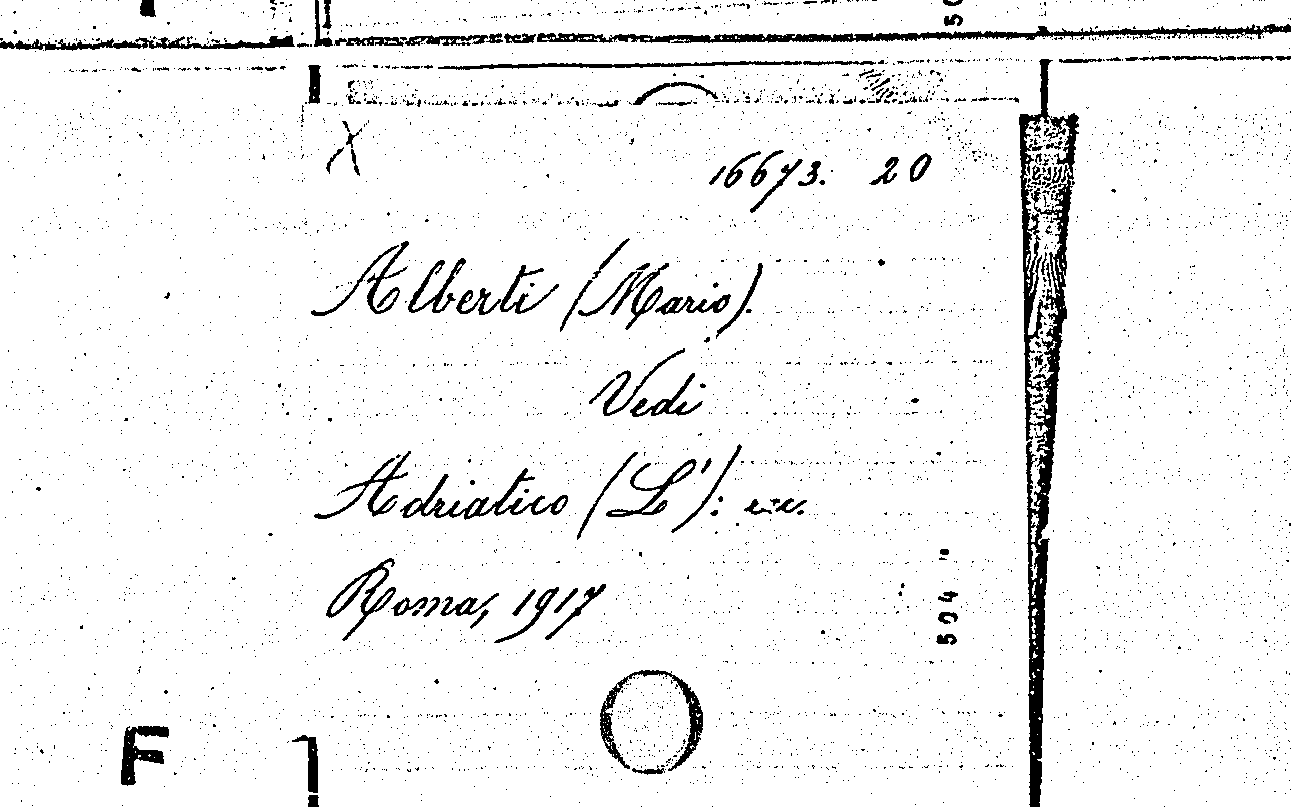 X
16673. 20
Alberti (Mario).
Vedi
Adriatico (L'): ecc.
Roma, 1917
504 "
F